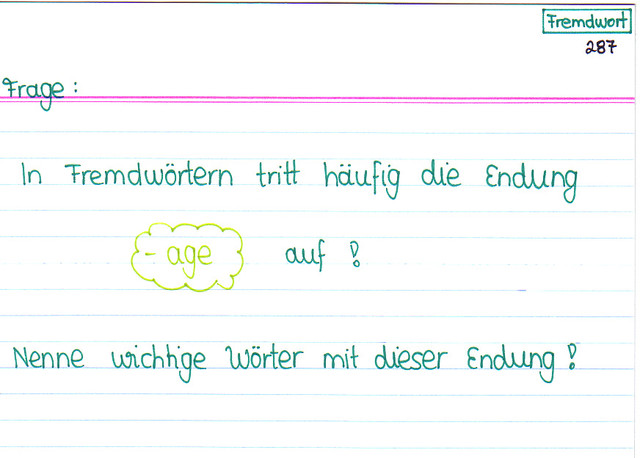 Fremdwort
287
Frage :
In Fremdwörtern tritt häufig die Endung
- age auf !
Nenne wichtige Wörter mit dieser Endung !